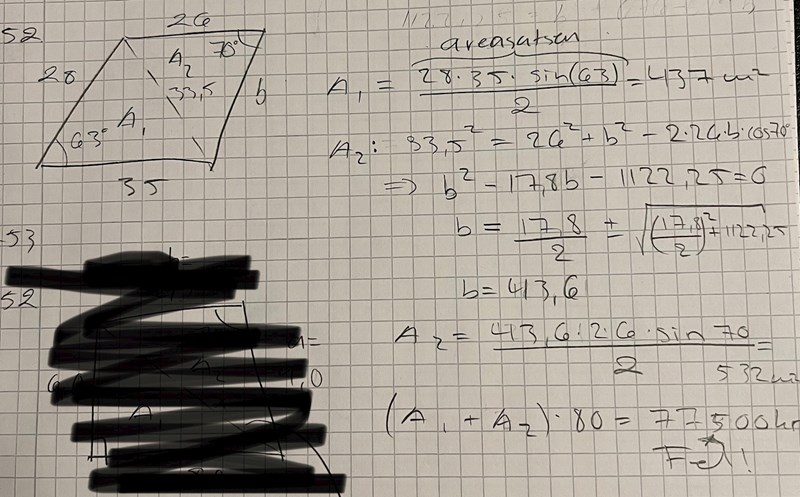 52
26
28
A₂
70°
33,5
b
63°
A₁
35
areasatsen
A₁ = 28·35·sin(63) / 2 = 437 m²
A₂: 33,5² = 26² + b² - 2·26·b·cos70°
=> b² - 17,8b - 1122,25 = 0
b = 17,8 / 2 ± √((17,8 / 2)² + 1122,25
b = 413,6
A₂ = 413,6·26·sin 70 / 2 =
532 m²
(A₁ + A₂)·80 = 77500kr
Fel!
53
b=
52